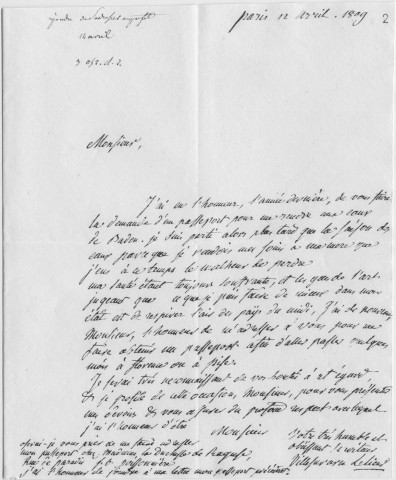 paris 12 avril. 1809
2
14 avril
Monsieur,
J'ai eu l'honneur, l'année dernière, de vous faire
la demande d'un passeport pour me rendre aux eaux
de Baden. je suis parti alors plus tard que la saison des
eaux parce que je rendois mes soins à ma mere que
j'eus à ce temps le malheur de perdre
ma santé étant toujours souffrante, et les gens de l'art
jugeant que ce que je puis faire de mieux dans mon
état est de respirer l'air des pays du midi, J'ai de nouveau
Monsieur, l'honneur de m'adresser à vous pour me
faire obtenir un passeport afin d'aller passer quelques
mois à florence ou à pise.
Je serai très reconnaissant de vos bontés à cet égard
& je profite de cette occasion, Monsieur, pour vous présenter
mes devoirs & vous assurer du profond respect avec lequel
j'ai l'honneur d'être
Monsieur
Votre très humble et
obéissant serviteur
oserai-je vous prier de me faire adresser
mon passeport chez Madame la Duchesse de Raguse,
rue de paradis f.g poissonnière
J'ai l'honneur de joindre à ma lettre mon passeport précédent.